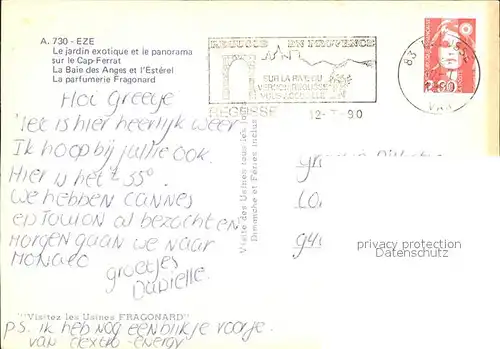 A. 730 - EZE
Le jardin exotique et le panorama
sur le Cap-Ferrat
La Baie des Anges et l'Estérel
La parfumerie Fragonard
REGUSSE EN PROVENCE
SUR LA RTE DU
VERDON REGUSSE
VOUS ACCUEILLE
REGUSSE 12-7-90
83
VAR
Hoi Greetje
'Tec is hier heerlyk weer
Ik hoop bij jullie ook.
Hier is het ± 35°
We hebben cannes
en Toulon al bezochten
Morgen gaan we naar
Monaco
groetjes
Danielle.
Visite des Usines tous les jours
Dimanche et Fériés inclus
privacy protection
Datenschutz
"Visitez les Usines FRAGONARD"
P.S. ik heb nog een blikje voor je
van dextro-energy